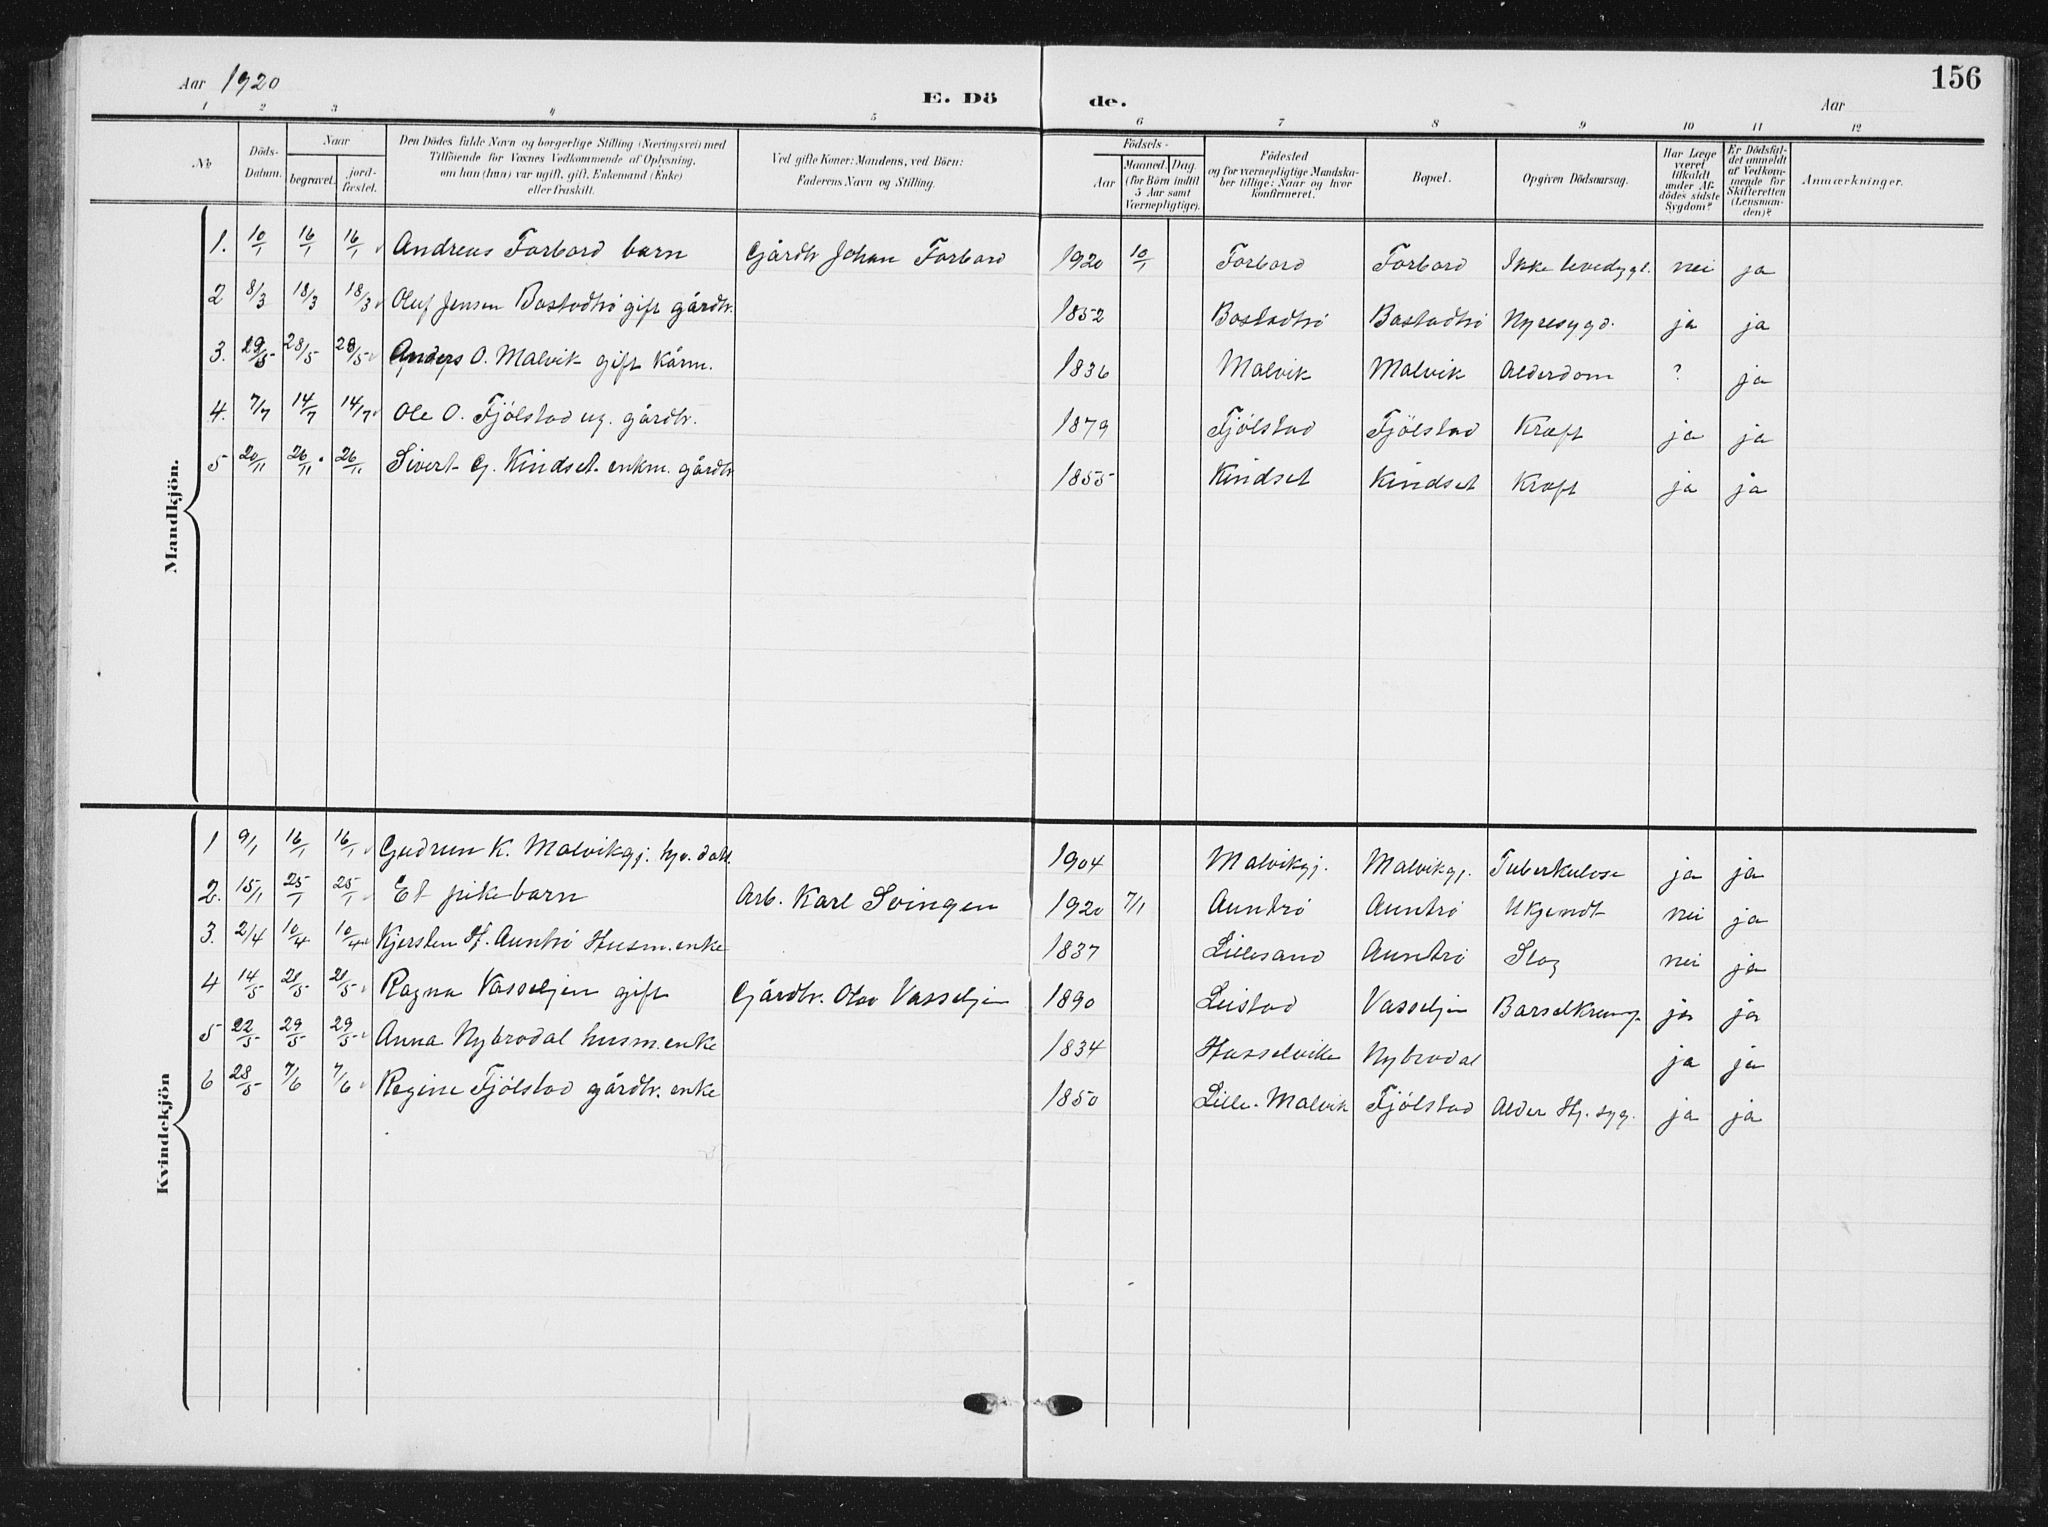 Aar 1920
E. Dö de.
Aar
156
1 2 3 4 5 6 7 8 9 10 11 12
No.
Döds-Datum.
Naar
begravet.
jord-fæstet.
Den Dödes fulde Navn og borgerlige Stilling (Næringsvei) med Tilföiende for Voxnes Vedkommende af Oplysning, om han (hun) var ugift, gift, Enkemand (Enke) eller fraskilt.
Ved gifte Koner: Mandens, ved Börn: Faderens Navn og Stilling.
Födsels-
Aar
Maaned. Dag.
(for Börn indtil 5 Aar samt Værnepligtige).
Födested og for værnepligtige Mandskaber tillige: Naar og hvor konfirmeret.
Bopæl.
Opgiven Dödsaarsag.
Har Læge været tilkaldt under Afdödes sidste Sygdom?
Er Dödsfaldet anmeldt af Vedkommende for Skifteretten (Lensmanden)?
Anmærkninger.
Mandkjön.
1. 10/1 16/1 16/1 Andreas Forbord barn Gjårdbr Johan Forbord 1920 10/1 Forbord Forbord Ikke levedygt. nei ja
2 8/3 18/3 18/3 Oluf Jensen Bostadtrø gift gårdbr. 1852 Bostadtrø Bostadtrø Nyresygd. ja ja
3. 28/5 28/5 Anders O. Malvik gift kårm. 1836 Malvik Malvik Alderdom ? ja
4. 7/7 14/7 14/7 Ole O. Fjølstad ug. gårdbr. 1879 Fjølstad Fjølstad Kræft ja ja
5 20/11 26/11 26/11 Sivert G. Kindset enkm. gårdbr 1855 Kindset Kindset Kræft ja ja
Kvindekjön
1 9/1 16/1 16/1 Gudrun K. Malvikgj. hjv. datt. 1904 Malvikgj. Malvikgj. Tuberkulose ja ja
2. 15/1 25/1 25/1 Et pikebarn Arb. Karl Svingen 1920 7/1 Auntrø Auntrø Ukjendt nei ja
3. 2/4 10/4 10/4 Kjersten H. Auntrø Husm.enke 1837 Lillesand Auntrø Slag nei ja
4 14/5 21/5 21/5 Ragna Vasseljen gift Gjårdbr. Olav Vasseljen 1890 Leistad Vasseljen Barselkramp. ja ja
5 22/5 29/5 29/5 Anna Nybrodal husm.enke 1834 Hasselvika Nybrodal ja ja
6 28/5 7/6 7/6 Regine Fjølstad gårdbr. enke 1850 Lille-Malvik Fjølstad Alder Hj. syg. ja ja